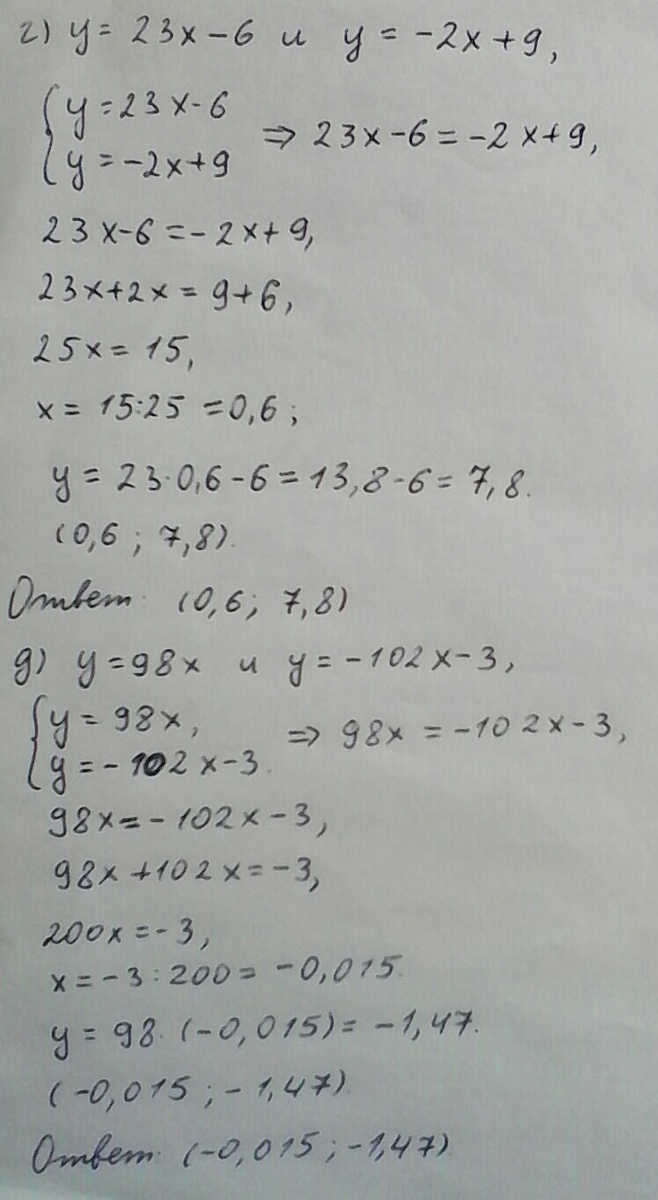 г) y = 23x - 6 и y = -2x + 9,
{ y = 23x - 6
y = -2x + 9 ⇒ 23x - 6 = -2x + 9,
23x - 6 = -2x + 9,
23x + 2x = 9 + 6,
25x = 15,
x = 15:25 = 0,6;
y = 23·0,6 - 6 = 13,8 - 6 = 7,8.
(0,6; 7,8).
Ответ: (0,6; 7,8)
g) y = 98x и y = -102x - 3,
{ y = 98x,
y = -102x - 3. ⇒ 98x = -102x - 3,
98x = -102x - 3,
98x + 102x = -3,
200x = -3,
x = -3:200 = -0,015.
y = 98·(-0,015) = -1,47.
(-0,015; -1,47).
Ответ: (-0,015; -1,47)